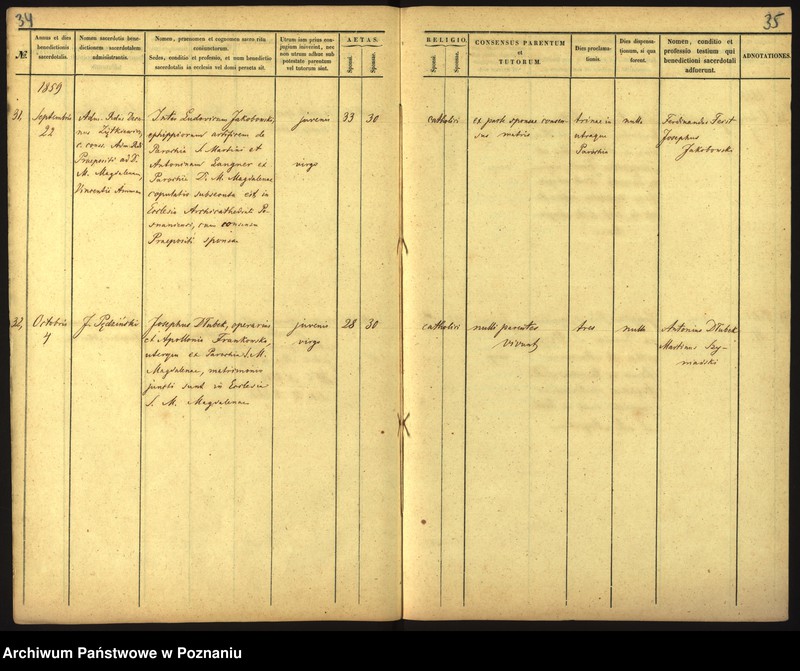 34
35
№.
Annus et dies
benedictionis
sacerdotalis.
Nomen sacerdotis bene-
dictionem sacerdotalem
administrantis.
Nomen, praenomen et cognomen sacro ritu
coniunctorum.
Sedes, conditio et professio, et num benedictio
sacerdotalis in ecclesia vel domi peracta sit.
Utrum iam prius con-
jugium iniverint, nec
non utrum adhuc sub
potestate parentum
vel tutorum sint.
AETAS.
Sponsi.
Sponsae.
RELIGIO.
Sponsi.
Sponsae.
CONSENSUS PARENTUM
et
TUTORUM.
Dies proclama-
tionis.
Dies dispensa-
tionum, si quae
forent.
Nomen, conditio et
professio testium qui
benedictioni sacerdotali
adfuerunt.
ADNOTATIONES.
1859
31.
Septembris
22
Praepositi ad D.
M. Magdalenam
Vincentii
Ludovicum Jakobowski,
ephippiorum artificem de
Parochia S. Martini et
Antoninam Langner ex
Parochia D. M. Magdalenae
copulatio subsecuta est, in
Ecclesia Archicathedrali Po-
snaniensi, cum consensu
Praepositi sponsae
juvenis
virgo
33
30
catholici
ex parte sponsae consen-
sus matris
trina in
utraque
Parochia
nulla
Ferdinandus
Josephus
Jakobowski
32.
Octobris
4
J. Pędziński
Josephus Dłubek, operarius
et Apollonia Frankowska,
uterque ex Parochia S. M.
Magdalenae, matrimonio
juncti sunt in Ecclesia
S. M. Magdalenae
juvenis
virgo
28
30
catholici
nulli parentes
vivunt
tres
nulla
Antonius Dłubek
Martinus Szy-
mański
Archiwum Państwowe w Poznaniu